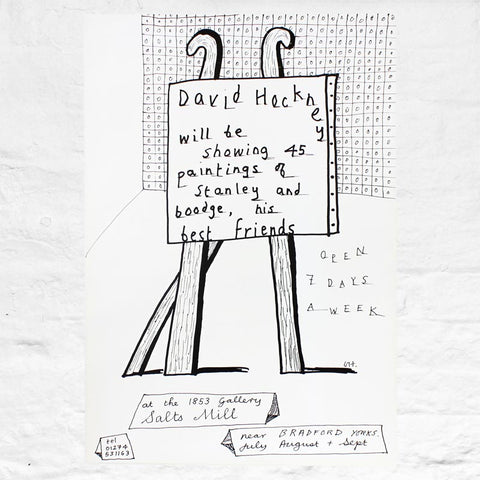 David Hockney
will be
showing 45
paintings of
Stanley and
boodge, his
best friends
OPEN
7 DAYS
A WEEK
at the 1853 Gallery
Salts Mill
near BRADFORD YORKS.
July August + Sept
tel
01274
531163